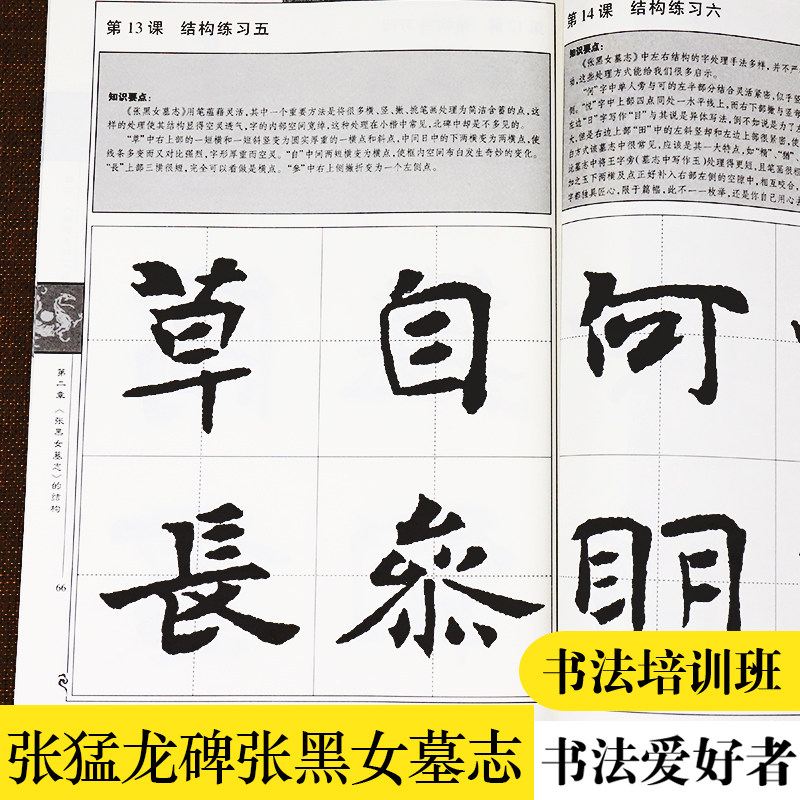 第13课 结构练习五
知识要点：
《张黑女墓志》用笔蕴藉灵活，其中一个重要方法是将很多横、竖、撇、捺笔画处理为简洁含蓄的点，这
样的处理使其结构显得空灵透气，字的内部空间宽绰，这种处理在小楷中常见，此碑中却是不多见的。
“草”中右上部的一短横和一短斜竖变为圆实厚重的一横点和斜点，中间日中的下两横变为两横点，使
线条多变而又对比强烈，字形厚重而空灵。“自”中间两短横变为横点，使框内空间布白发生奇妙的变化。
“長”上部三横很短，完全可以看做是横点。“参”中右上侧撇折变为一个左侧点。
草 自
長 叅
第二章《张黑女墓志》的结构
66
第14课 结构练习六
知识要点：
《张黑女墓志》中左右结构的字处理手法多样，并不严
，这些处理方式能给我们很多启示。
“何”字中单人旁与可的左半部分结合灵活紧密，似乎竖
侧。“悦”字中上部四点同处一水平线上，而右下部撇与竖弯
左边“日”字写作“目”与其说是异体写法，倒不如说是为了
大，但是右边上部“田”中的左斜竖却和左边上部很紧密，使
白方式该墓志中很常见，应该是其一大特点，如“精”、“
比墓志中将王字旁（墓志中写作玉）处理得更短，且笔画很粗
加之玉下两横及点正好补入右部左侧的空隙中，相互咬合，
字都独具匠心，限于篇幅，此不一一枚举，还是你自己用心去
何
明
书法培训班
张猛龙碑张黑女墓志
书法爱好者